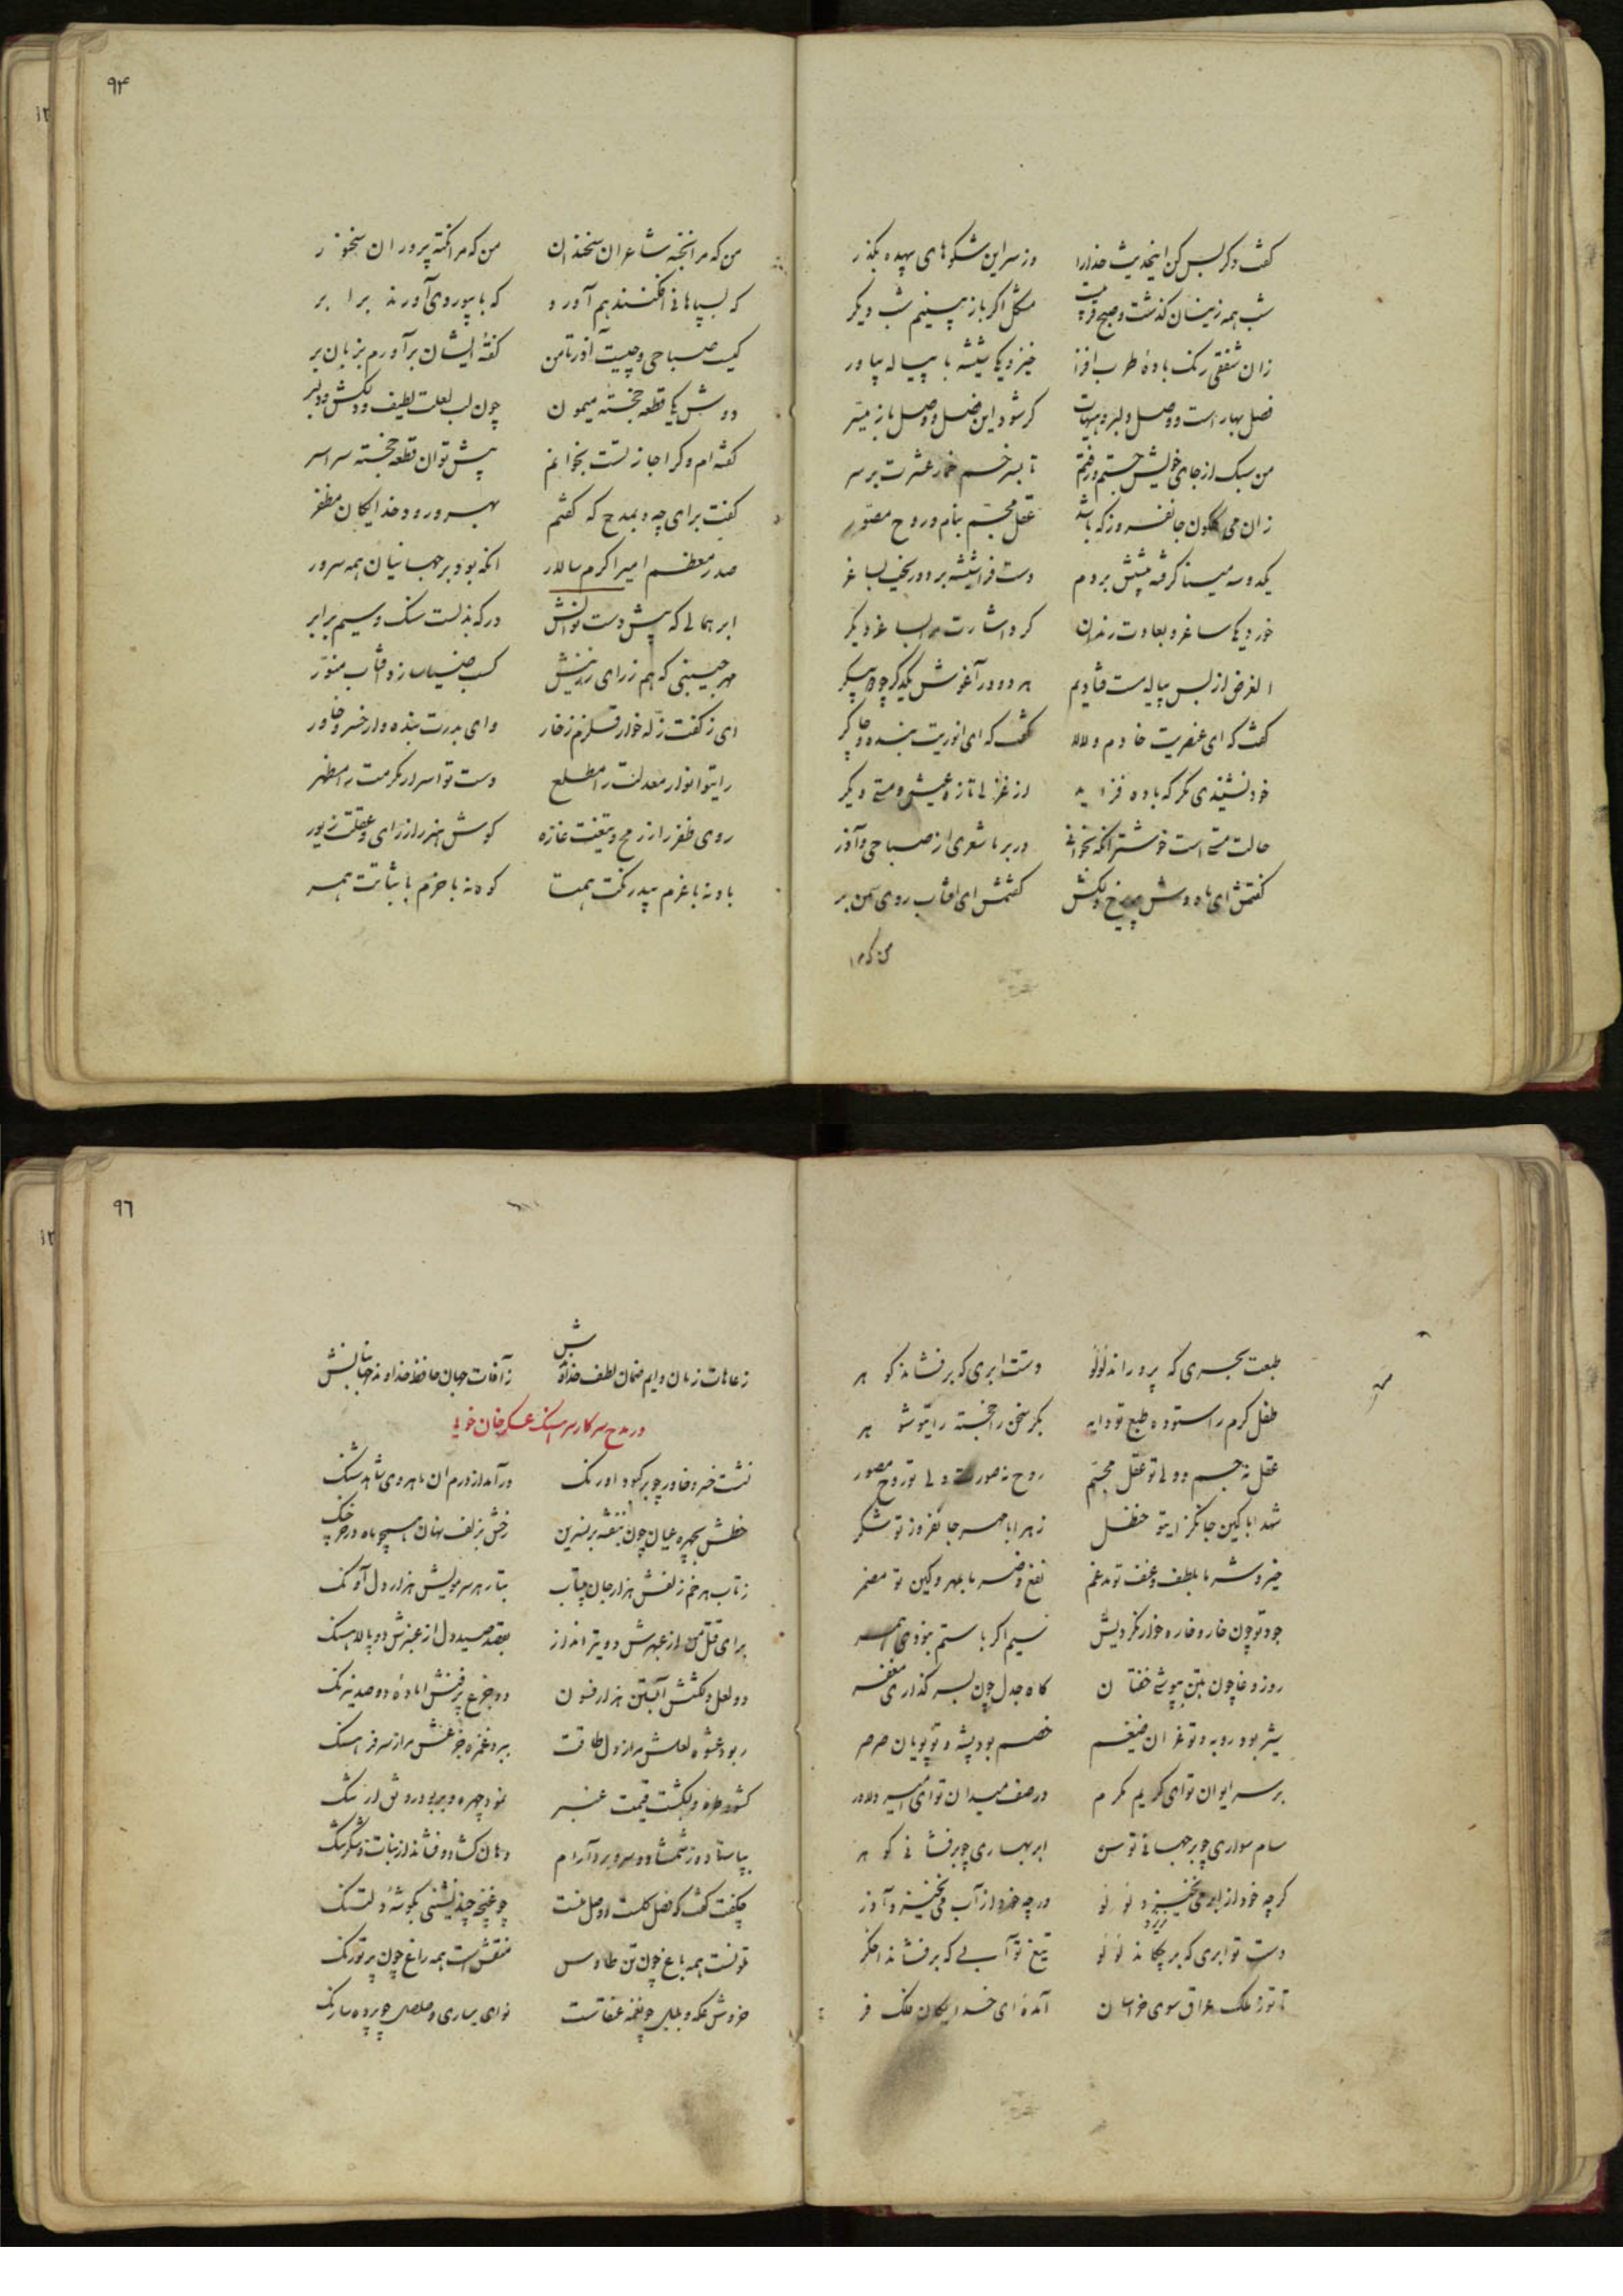 گفت دگر بس کن اینحدیث خدارا وز سر این شکوهای بیهده بگذر
شب همه زینسان گذشت و صبح قریبست مشکل اگر باز بینم شب دیگر
زان شفقی رنگ بادهٔ طرب افزا خیز و یکی شیشه با پیاله بیاور
فصل بهار است و وصل دلبر و هیهات گر شود این فصل و وصل باز میسر
من سبک از جای خویش جستم و رفتم تا بسر خم خمار عشرت بر سر
زان می گلگون جانفروز که باشد عقل مجسم بنام و روح مصور
یکدوسه مینا گرفته پیشش بردم دست فرا شیشه برد و ریخت بساغر
خورد یکی ساغر و بعادت رندان کرد اشارت مرا بساغر دیگر
الغرض از بس پیاله مست فتادیم هر دو در آغوش یکدگر چو دو پیکر
گفت که ای عنصریت خادم و لالا گفت که ای انوریت بنده و چاکر
خود نشنیدی مگر که باده فزاید از غزلی تازه عیش و مستی دیگر
حالت مستی است خوشتر آنکه بخوانی در بر ما شعری از صباحی و آذر
گفتمش ای ماه دوش دلکش گفتمش ای آفتاب روی سمن بر
من که مرا
۹۴
من که مرا نخبه شاعران سخندان من که مرا نکته پروران سخنور
که بسپاهانی افکنند هم آورد که با بیوردی آورند برابر
کیست صباحی و چیست آذر تا من گفتهٔ ایشان برآورم بزبان بر
دوش یکی قطعه خجسته میمون چون لب لعلت لطیف و دلکش و دلبر
گفته ام و گر اجازتست بخوانم پیش تو آن قطعه خجسته سراسر
گفت برای چه و بمدح که گفتم بهر ورود خدایگان مظفر
صدر معظم امیر اکرم سالار آنکه بود بر جهانیان همه سرور
ابر همالی که پیش دست نوالش درگه بذلست سنگ و سیم برابر
مهر جبینی که هم ز رای رزینش کسب ضیا سازد آفتاب منور
ای ز کفت زله خوار قلزم زخار وای بدرت بنده وار خسرو خاور
رایتو انوار معدلت را مطلع دست تو اسرار مکرمت را مظهر
روی ظفر را ز رمح و تیغت غازه گوش هنر را ز رای و عقلت زیور
باد نه با عزم بیدرنگت همتا کوه نه با حزم با ثباتت همسر
طبعت بحری که پروراند لؤلؤ دستت ابری که برفشاند گوهر
طفل کرم را ستوده طبع تو دایه بکر سخن را خجسته رایتو شوهر
عقل نه جسم و ولی تو عقل مجسم روح نه صورت ولی تو روح مصور
شهد ابا کین جانگزایتو حنظل زهر ابا مهر جانفروز تو شکر
خیر و شر ما بلطف و عنف تو مدغم نفع و ضر ما بمهر و کین تو مضمر
جود تو چون خار و خاره خوار نکردیش سیم اگر با ستم نبودی همسر
روز وغا چون بتن بپوشی خفتان گاه جدل چون بسر گذاری مغفر
شیر بود روبه و تو غران ضیغم خصم بود پشه و تو پویان صرصر
بر سر ایوان توای کریم مکرم در صف میدان توای امیر دلاور
سام سواری چو برجهانی توسن ابر بهاری چو برفشانی گوهر
گرچه خود از ابر می نخیزد لؤلؤ ورچه خود از آب می نخیزد آذر
ریزد
دست تو ابری که برچکاند لؤلؤ تیغ تو آبی که برفشاند اخگر
تا تو ز ملک عراق سوی خراسان آمدهٔ ای خدایگان ملک فر
۹۶
ز عاهات زمان دایم ضمان لطف خداوندش ز آفات جهان حافظ خداوند جهانبانش
در مدح سرکار سرهنگ عسکر خان خوئی
نشست خسرو خاور چو بر کبود اورنگ درآمد از درم آن ماهروی شاهد شنگ
خطش بچهره عیان چون بنفشه بر نسرین رخش بزلف نهان همچو ماه در خرچنگ
ز تاب هر خم زلفش هزار جان بیتاب بتار هر سر مویش هزار دل آونگ
برای قتل من از عبهرش دو تیرانداز بقصد صید دل از عنبرش دو پالاهنگ
دو لعل دلکشش آبستن هزار فسون دو جزع پرفنش آمادهٔ دو صد نیرنگ
ربود عشوه لعلش مرا ز دل طاقت ببرد غمزه جزعش مرا ز سر فرهنگ
گشود طره و بشکست قیمت عنبر نمود چهره و ببرد رونق ارژنگ
بپا ستاد و ز شمشاد و سرو برد آرام دهان گشاد و فشاند از نبات و شکر تنگ
چگفت گفت که فصل گلست و اصل منست چو غنچه چند نشینی بگوشهٔ دلتنگ
ملونست همه باغ چون تن طاوس منقش است همه راغ چون پر تورنگ
خروش عکه و بلبل چو نغمه عنقاست نوای ساری و صلصل چو پرده سارنگ